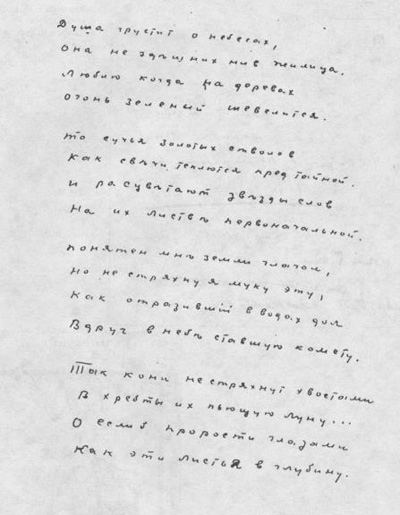 Душа грустит о небесах,
Она не здѣшних нив жилица.
Люблю когда на деревах
Огонь зеленый шевелится.
То сучья золотых стволов
Как свѣчи теплятся пред тайной.
И расцвѣтают звѣзды слов
На их листвѣ первоначальной.
Понятен мнѣ земли глагол,
Но не стряхну я муку эту,
Как отразивший в водах дол
Вдруг в небѣ ставшую комету.
Так кони не стряхнут хвостами
В хребты их пьющую луну...
О еслиб прорости глазами
Как эти листья в глубину.